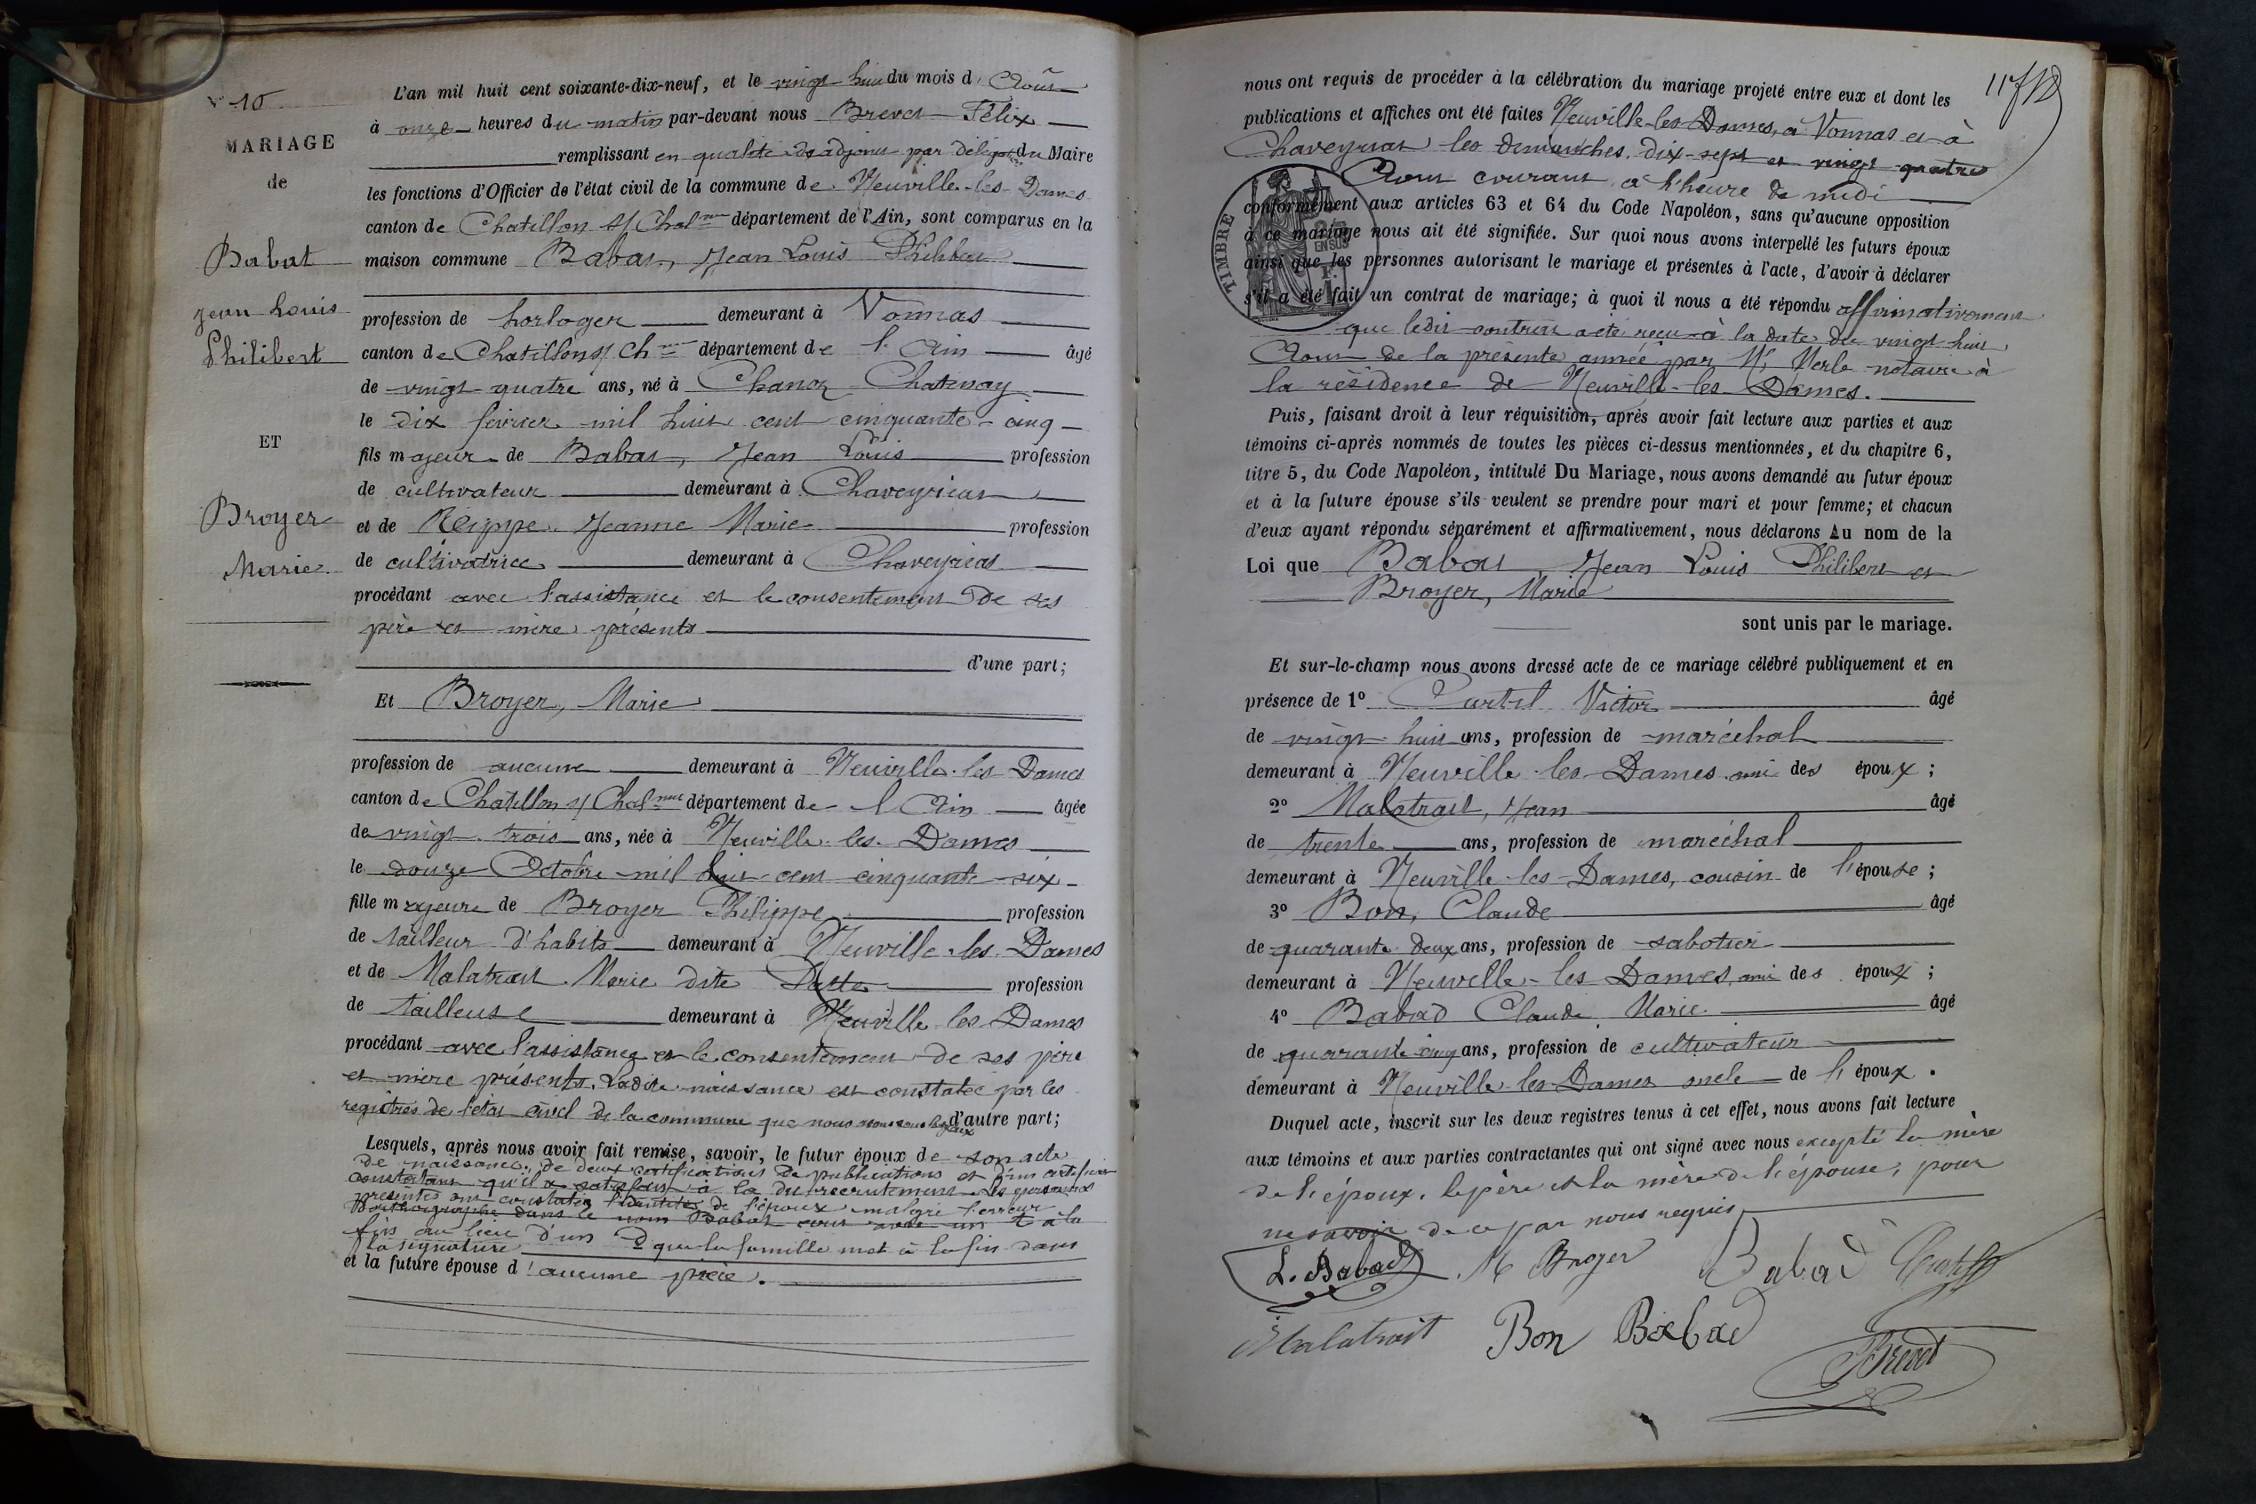 N° 10
MARIAGE
de
Babat
Jean Louis
Philibert
ET
Broyer
Marie
L'an mil huit cent soixante-dix-neuf, et le vingt huit du mois d'Août
à onze heures du matin par-devant nous Brevet Félix
remplissant en qualité d'adjoint par délégat.on du Maire
les fonctions d'Officier de l'état civil de la commune de Neuville-les-Dames
canton de Chatillon s/ Chal.nne département de l'Ain, sont comparus en la
maison commune Babat, Jean Louis Philibert
profession de horloger demeurant à Vonnas
canton de Chatillon s/ Ch.nne département de l'Ain âgé
de vingt-quatre ans, né à Chanoz-Chatenay
le dix février mil huit cent cinquante-cinq
fils majeur de Babat, Jean Louis profession
de cultivateur demeurant à Chaveyriat
et de Jeanne Marie profession
de cultivatrice demeurant à Chaveyriat
procédant avec l'assistance et le consentement de ses
père et mère présents
d'une part;
Et Broyer, Marie
profession de aucune demeurant à Neuville-les-Dames
canton de Chatillon s/ Chal.nne département de l'Ain âgée
de vingt-trois ans, née à Neuville-les-Dames
le douze Octobre mil huit cent cinquante-six
fille majeure de Broyer Philippe profession
de tailleur d'habits demeurant à Neuville-les-Dames
et de Malatrait Marie dite profession
de tailleuse demeurant à Neuville-les-Dames
procédant avec l'assistance et le consentement de ses père
et mère présents. Ladite naissance est constatée par les
registres de l'état civil de la commune que nous d'autre part;
Lesquels, après nous avoir fait remise, savoir, le futur époux de son acte
de naissance, de deux certifications de publications et d'un certificat
constatant qu'il a satisfait à la du recrutement. Les personnes
présentes ont constaté l'identité de l'époux malgré l'erreur
d'orthographe dans le nom Babat avec un t à la
fin au lieu d'un D que la famille met à la fin dans
la signature
et la future épouse d'aucune pièce.
nous ont requis de procéder à la célébration du mariage projeté entre eux et dont les
publications et affiches ont été faites Neuville-les-Dames, à Vonnas et à
Chaveyriat les dimanches dix-sept et vingt-quatre
Aout courant à l'heure de midi
conformément aux articles 63 et 64 du Code Napoléon, sans qu'aucune opposition
à ce mariage nous ait été signifiée. Sur quoi nous avons interpellé les futurs époux
ainsi que les personnes autorisant le mariage et présentes à l'acte, d'avoir à déclarer
s'il a été fait un contrat de mariage; à quoi il nous a été répondu affirmativement
que ledit contrat a été reçu à la date du vingt huit
Aout de la présente année par Me Merle notaire à
la résidence de Neuville-les-Dames.
TIMBRE
EN SUS
Puis, faisant droit à leur réquisition, après avoir fait lecture aux parties et aux
témoins ci-après nommés de toutes les pièces ci-dessus mentionnées, et du chapitre 6,
titre 5, du Code Napoléon, intitulé Du Mariage, nous avons demandé au futur époux
et à la future épouse s'ils veulent se prendre pour mari et pour femme; et chacun
d'eux ayant répondu séparément et affirmativement, nous déclarons Au nom de la
Loi que Babat Jean Louis Philibert et
Broyer, Marie
sont unis par le mariage.
Et sur-le-champ nous avons dressé acte de ce mariage célébré publiquement et en
présence de 1° Curtil Victor âgé
de vingt-huit ans, profession de maréchal
demeurant à Neuville-les-Dames ami des époux;
2° Malatrait, Jean âgé
de trente ans, profession de maréchal
demeurant à Neuville-les-Dames, cousin de l'épouse;
3° Bon, Claude âgé
de quarante-deux ans, profession de sabotier
demeurant à Neuville-les-Dames, ami des époux;
4° Babad Claude Marie âgé
de quarante-cinq ans, profession de cultivateur
demeurant à Neuville-les-Dames oncle de l'époux.
Duquel acte, inscrit sur les deux registres tenus à cet effet, nous avons fait lecture
aux témoins et aux parties contractantes qui ont signé avec nous excepté la mère
de l'époux, le père et la mère de l'épouse, pour
ne savoir de ce par nous requis
L. Babad M Broyer Babad Curtil
Malatrait Bon Babad
Brevet